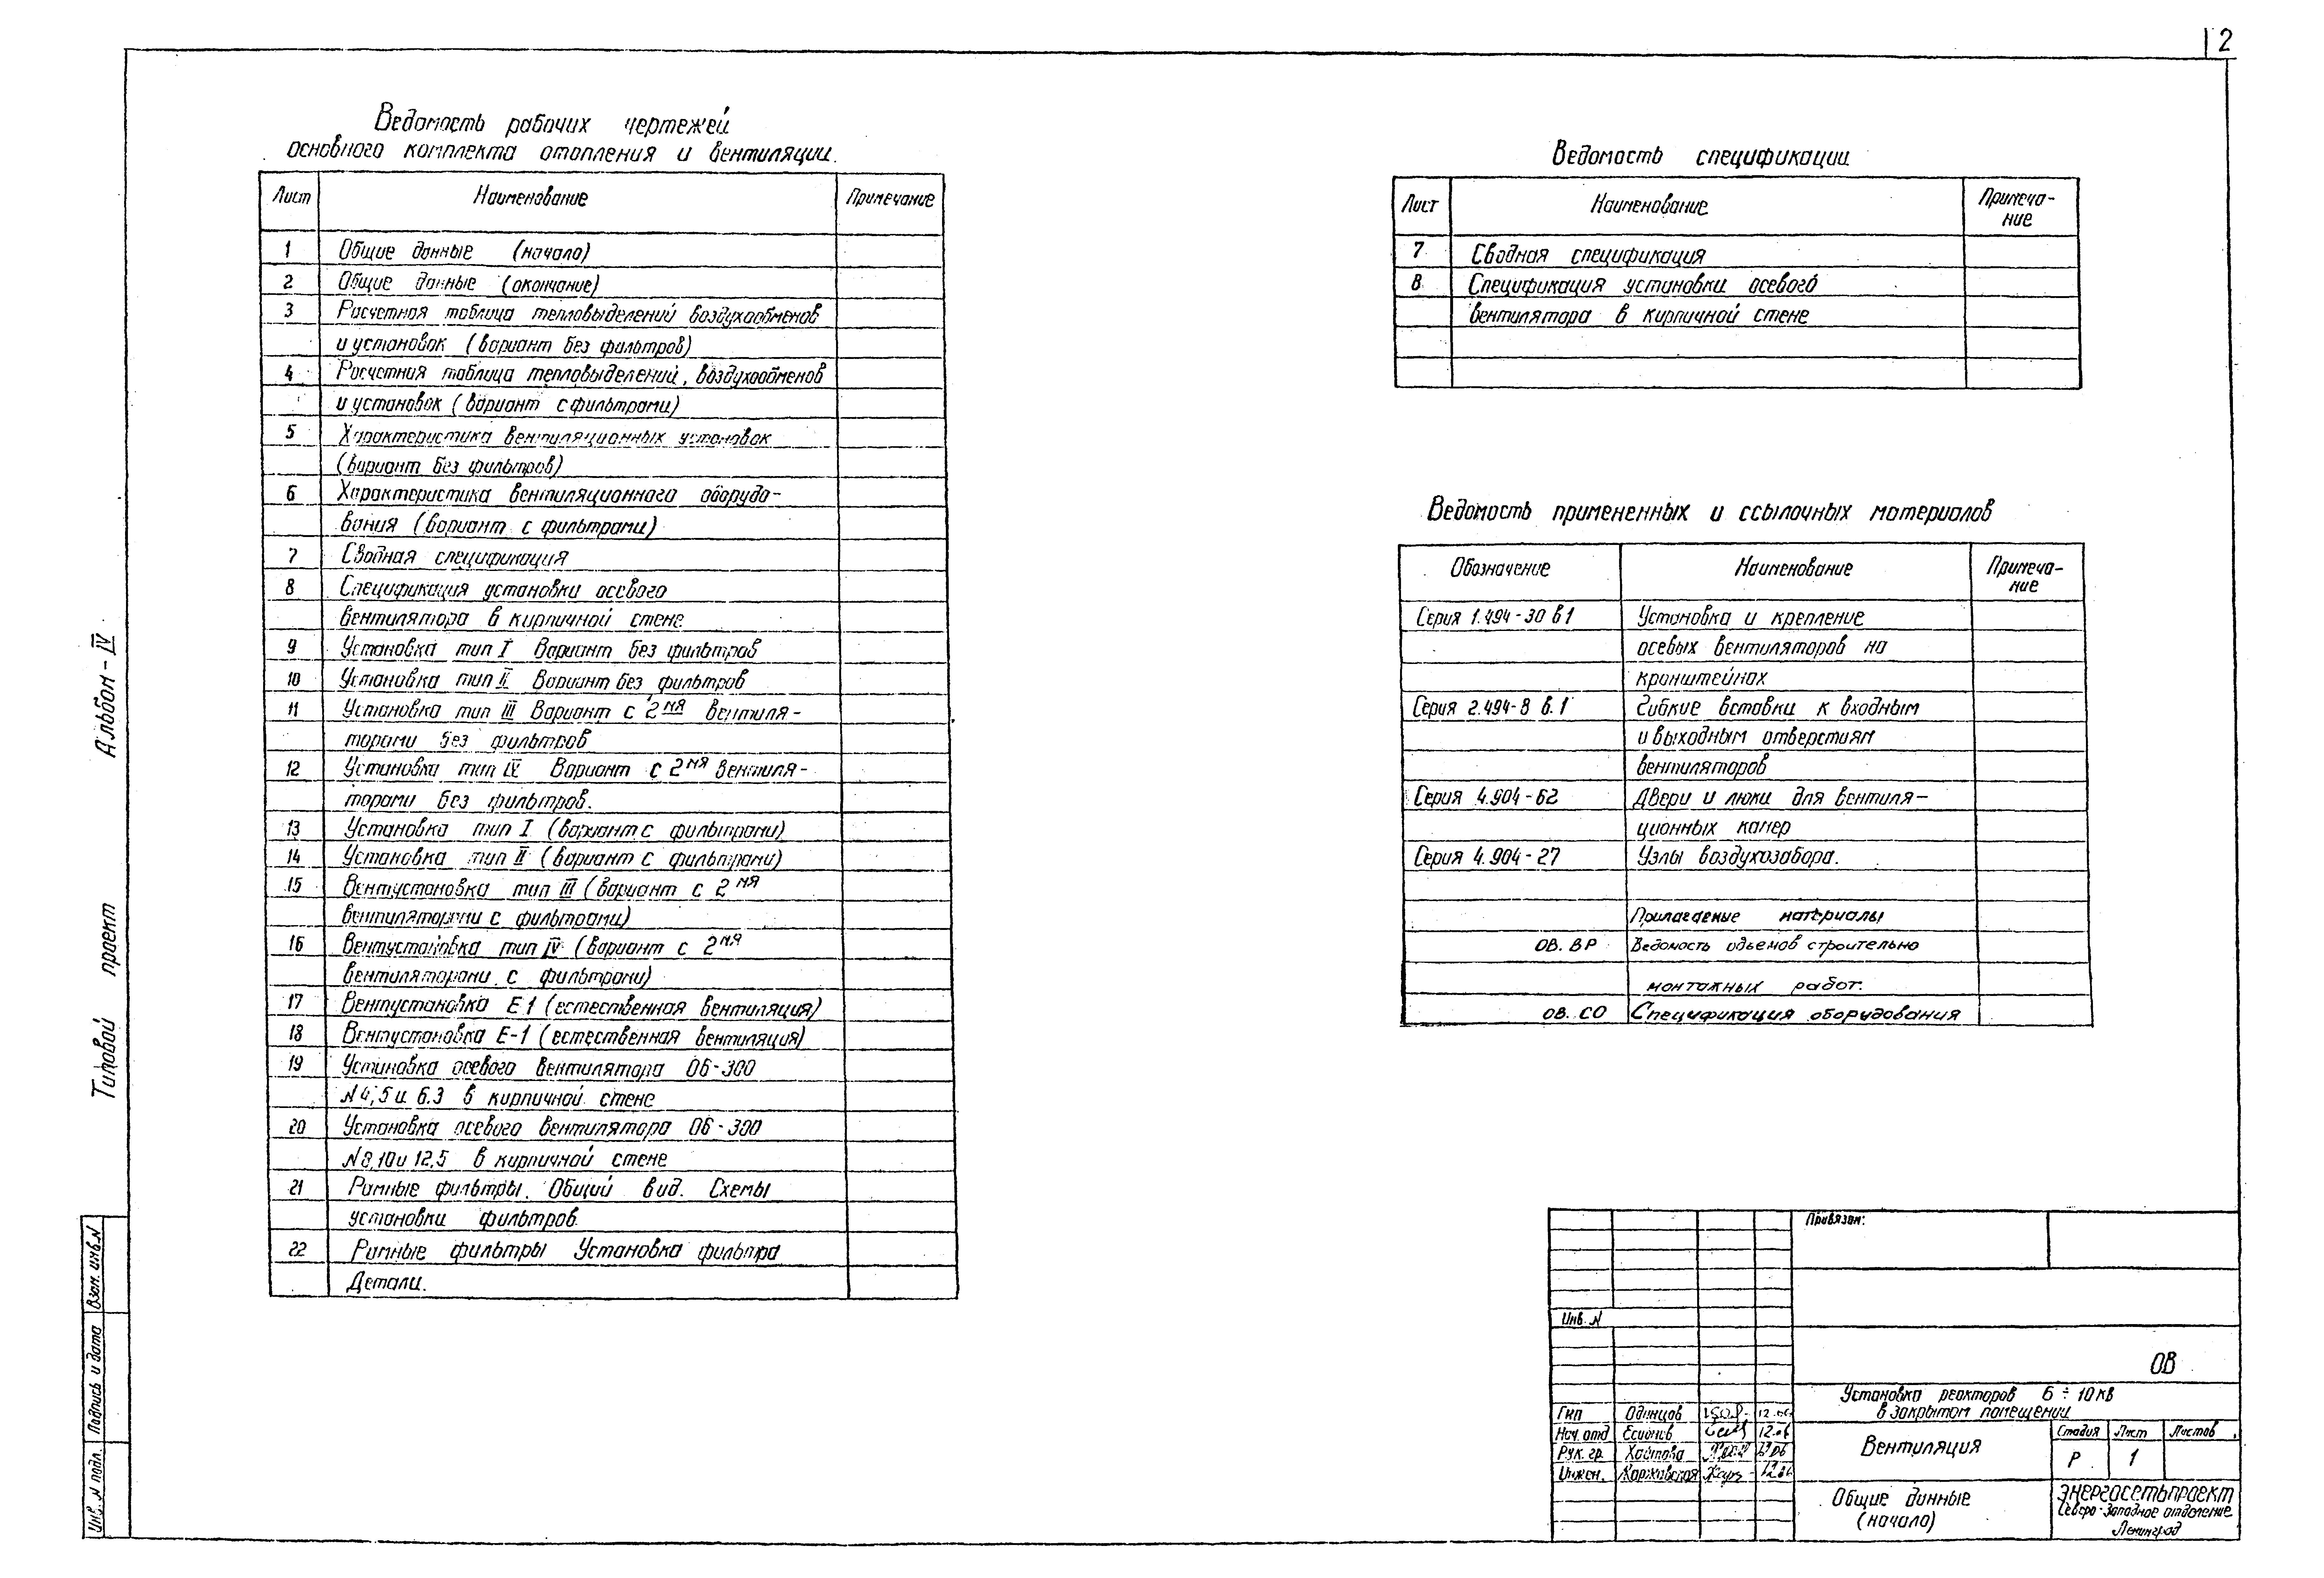 2
Ведомость рабочих чертежей
основного комплекта отопления и вентиляции.
Лист Наименование Примечание
1 Общие данные (начало)
2 Общие данные (окончание)
3 Расчетная таблица тепловыделений воздухообменов
и установок (вариант без фильтров)
4 Расчетная таблица тепловыделений, воздухообменов
и установок (вариант с фильтрами)
5 Характеристика вентиляционных установок
(вариант без фильтров)
6 Характеристика вентиляционного оборудо-
вания (вариант с фильтрами)
7 Сводная спецификация
8 Спецификация установки осевого
вентилятора в кирпичной стене
9 Установка тип I Вариант без фильтров
10 Установка тип II Вариант без фильтров
11 Установка тип III Вариант с 2мя вентиля-
торами без фильтров
12 Установка тип IV Вариант с 2мя вентиля-
торами без фильтров.
13 Установка тип I (вариант с фильтрами)
14 Установка тип II (вариант с фильтрами)
15 Вентустановка тип III (вариант с 2мя
вентиляторами с фильтрами)
16 Вентустановка тип IV (вариант с 2мя
вентиляторами с фильтрами)
17 Вентустановка Е1 (естественная вентиляция)
18 Вентустановка Е-1 (естественная вентиляция)
19 Установка осевого вентилятора 06-300
N4,5 и 6.3 в кирпичной стене
20 Установка осевого вентилятора 06-300
N8,10 и 12,5 в кирпичной стене
21 Рамные фильтры. Общий вид. Схемы
установки фильтров.
22 Рамные фильтры Установка фильтра
Детали.
Ведомость спецификации
Лист Наименование Примеча-
ние
7 Сводная спецификация
8 Спецификация установки осевого
вентилятора в кирпичной стене
Ведомость примененных и ссылочных материалов
Обозначение Наименование Примеча-
ние
Серия 1.494-30 в1 Установка и крепление
осевых вентиляторов на
кронштейнах
Серия 2.494-8 в.1 Гибкие вставки к входным
и выходным отверстиям
вентиляторов
Серия 4.904-62 Двери и люки для вентиля-
ционных камер
Серия 4.904-27 Узлы воздухозабора.
Прилагаемые материалы
ОВ. ВР Ведомость объемов строительно
монтажных работ.
ОВ. СО Спецификация оборудования
Типовой проект Альбом-IV
Инв. N подл. Подпись и дата Взам. инв. N
Привязан:
Инв. N
ОВ
Установка реакторов 6÷10 кв
в закрытом помещении
Гип Одинцов
Нач. отд Есионов 12.06
Рук. гр.
Инжен.
Вентиляция
Стадия Лист Листов
Р 1
Общие данные
(начало)
ЭНЕРГОСЕТЬПРОЕКТ
Северо-Западное отделение
Ленинград